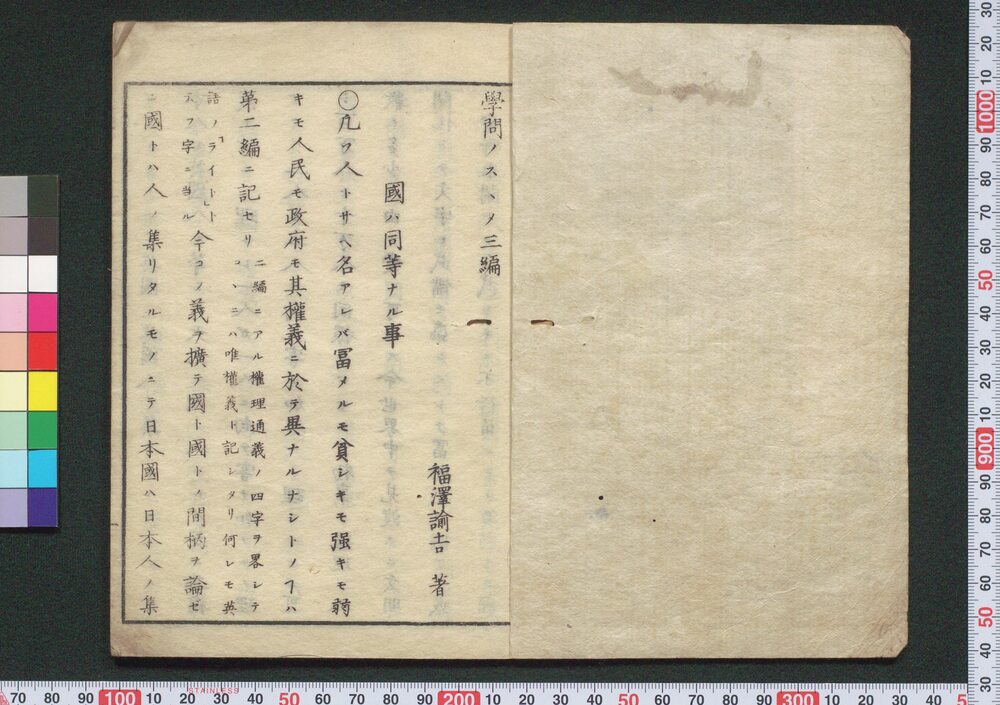 學問ノスヽメ三編
福澤諭吉 著
國ハ同等ナル事
○凡ソ人トサヘ名アレバ冨メルモ貧シキモ强キモ弱
キモ人民モ政府モ其權義ニ於テ異ナルナシトノヿハ
第二編ニ記セリ
二編ニアル權理通義ノ四字ヲ畧シテ
コヽニハ唯權義ト記シタリ何レモ英
語ノ「ライト」ト
云フ字ニ当ル
今コノ義ヲ擴テ國ト國トノ間柄ヲ論ゼ
ン國トハ人ノ集リタルモノニテ日本國ハ日本人ノ集
STAINLESS
70 80 90 100 10 20 30 40 50 60 70 80 90 200 10 20 30 40 50 60 70 80 90 300 10 20 30 40 5
30 20 10 1000 90 80 70 60 50 40 30 20 10 900 90 80 70 60 50 40 30